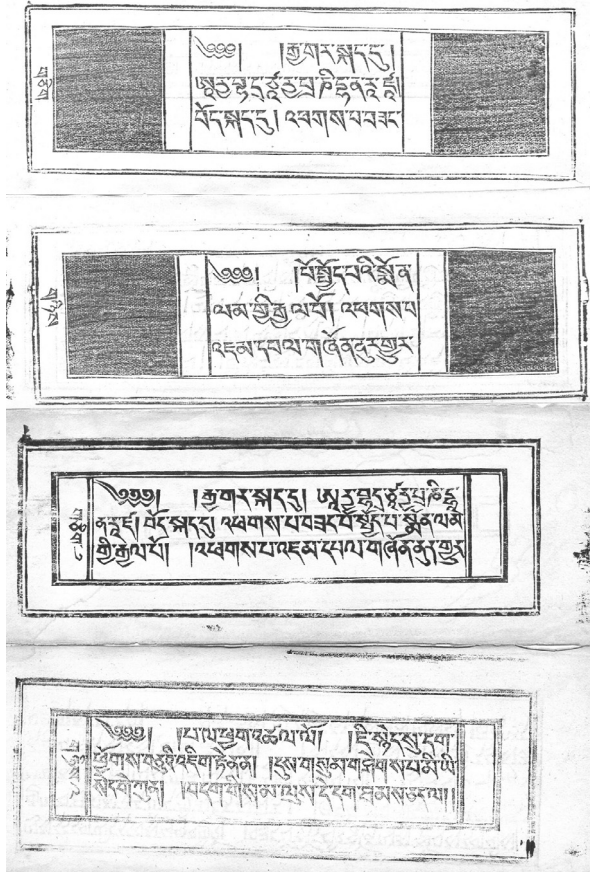 གཅིག
༄༅༅། །རྒྱ་གར་སྐད་དུ།
ཨཱརྱ་བྷ་དྲ་ཙརྱ་པྲ་ཎི་དྷ་ན་རཱ་ཛཱ།
བོད་སྐད་དུ། འཕགས་པ་བཟང་
གཉིས
༄༅༅། །པོ་སྤྱོད་པའི་སྨོན་
ལམ་གྱི་རྒྱལ་པོ། འཕགས་པ་
འཇམ་དཔལ་གཞོན་ནུར་གྱུར་
གཅིག་
༄༅༅། །རྒྱ་གར་སྐད་དུ། ཨཱརྱ་བྷ་དྲ་ཙརྱ་པྲ་ཎི་དྷཱ་
ན་རཱ་ཛ། བོད་སྐད་དུ། འཕགས་པ་བཟང་པོ་སྤྱོད་པ་སྨོན་ལམ་
གྱི་རྒྱལ་པོ། །འཕགས་པ་འཇམ་དཔལ་གཞོན་ནུར་གྱུར་
གཉིས་
༄༅༅། །པ་ལ་ཕྱག་འཚལ་ལོ། །ཇི་སྙེད་སུ་དག་
ཕྱོགས་བཅུའི་འཇིག་རྟེན་ན། །དུས་གསུམ་གཤེགས་པ་མི་ཡི་
སེང་གེ་ཀུན། །བདག་གིས་མ་ལུས་དེ་དག་ཐམས་ཅད་ལ། །